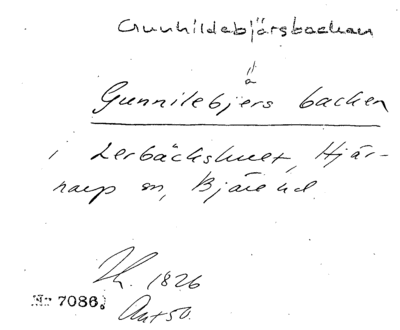 Gunnhildebjärsbacken
ä
Gunnilebjers backen
i Lerbäckshult, Hjär-
narp sn, Bjäre hd.
Lh. 1826
Nr 7086.
Ant 50.